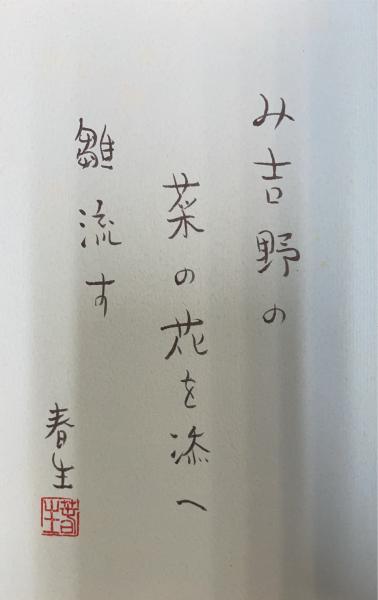 み吉野の
菜の花を添へ
雛流す
春生
春生